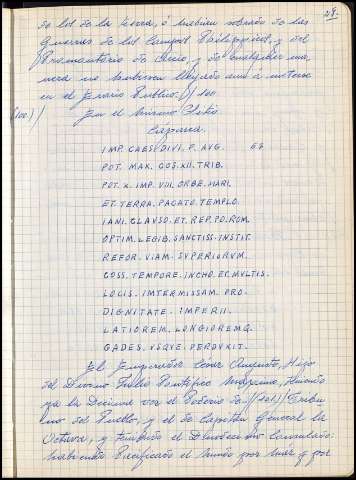 28.
de los de la tierra, ó hubiese sobrado de las
Guerras de los Campos Philipicos, y del
Promontorio de Accio, y de cualquier ma-
nera no hubiesen llegado aun a meterse
en el Erario Publico.//
(100.) En el mismo Sitio
Caparra.
IMP. CAES. DIVI. P. AVG. 68
POT. MAX. COS. XII. TRIB.
POT. X. IMP. VIII. ORBE. MARI.
ET. TERRA. PACATO. TEMPLO.
IANI. CLAVSO. ET. REP. PO. ROM.
OPTIM. LEGIB. SANCTISS. INSTIT.
REFOR. VIAM. SVPERIORVM.
COSS. TEMPORE. INCHO. ET. MVLTIS.
LOCIS. INTERMISSAM. PRO.
DIGNITATE. IMPERII.
LATIOREM. LONGIOREMQ.
GADES. VSQVE. PERDVXIT.
El Emperador César Augusto, Hijo
del Divino Julio Pontifice Maximo, 
ya la Decima vez el Poderio de//(101)//Tribu
no del Pueblo, y el de Capitán General la
Octava, y tenido el Duodecimo Consulado:
habiendo Pacificado el Mundo por Mar y por